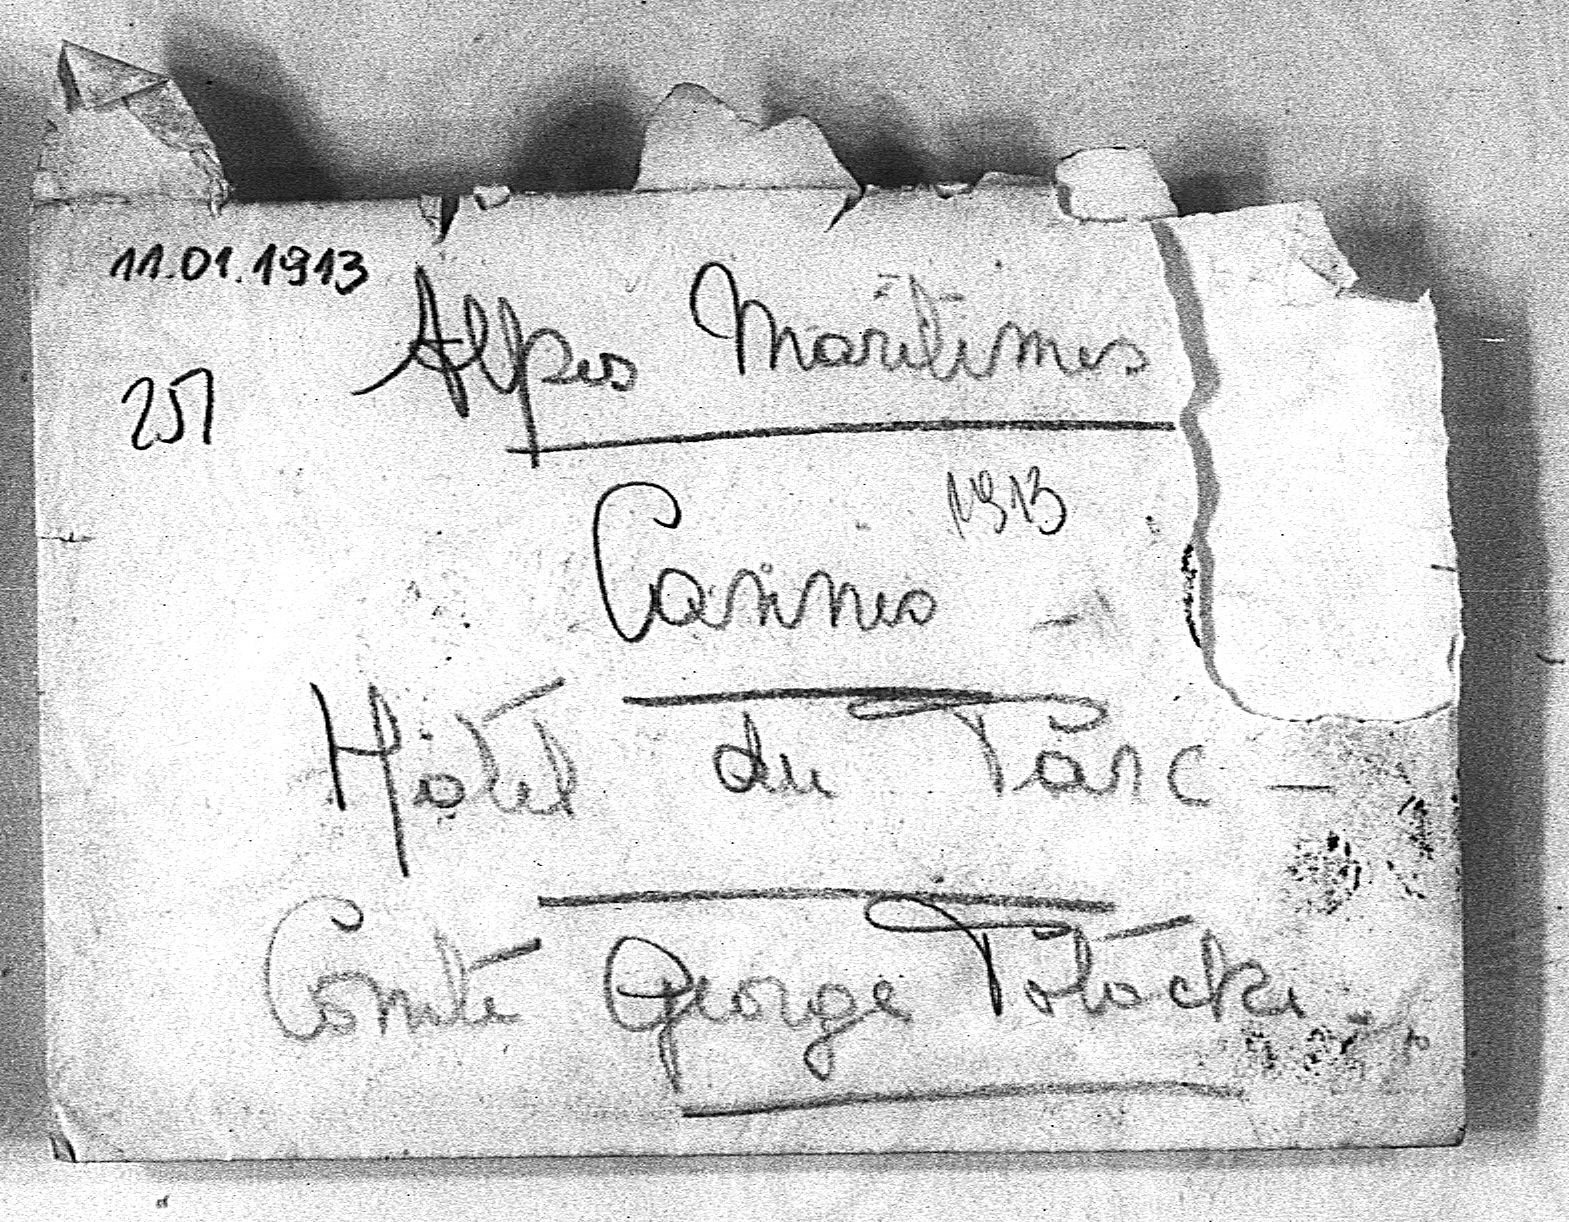 11.01.1913
Alpes Maritimes
251
1913
Cannes
Hôtel du Parc -
Comte George Potocki